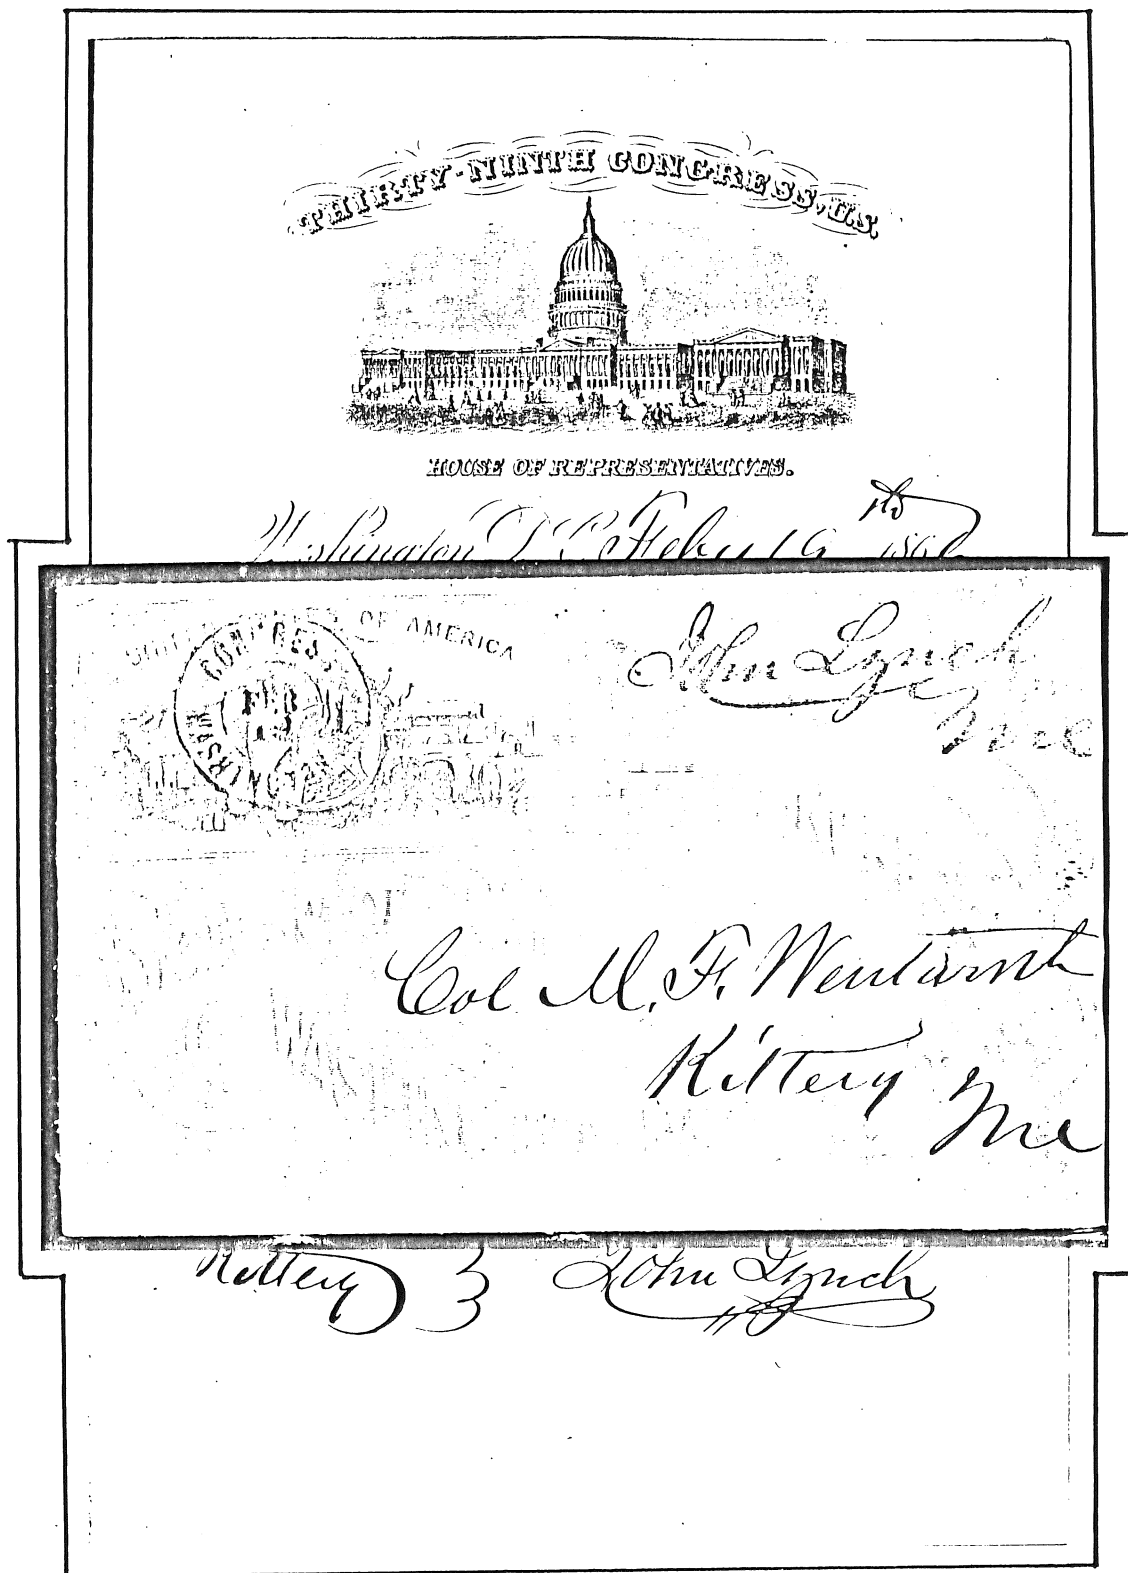 THIRTY-NINTH CONGRESS, U.S.
HOUSE OF REPRESENTATIVES.
Washington D C Feby 19 th
UNITED STATES OF AMERICA
WASHINGTON CONGRESS
FEB
John Lynch
Me
Col M. F. Wentworth
Kittery
Me
Kittery John Lynch